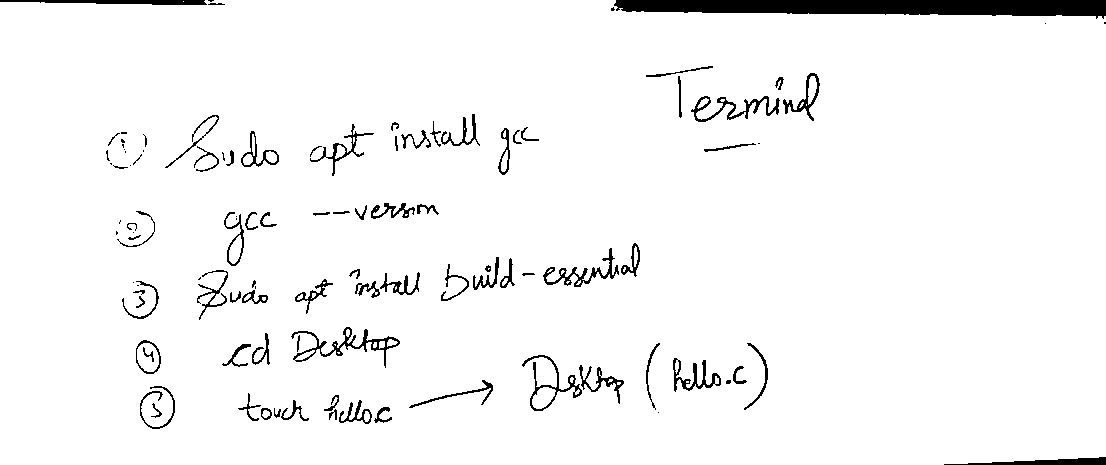 Terminal
① Sudo apt install gcc
② gcc --version
③ Sudo apt install build-essential
④ cd Desktop
⑤ touch hello.c → Desktop (hello.c)